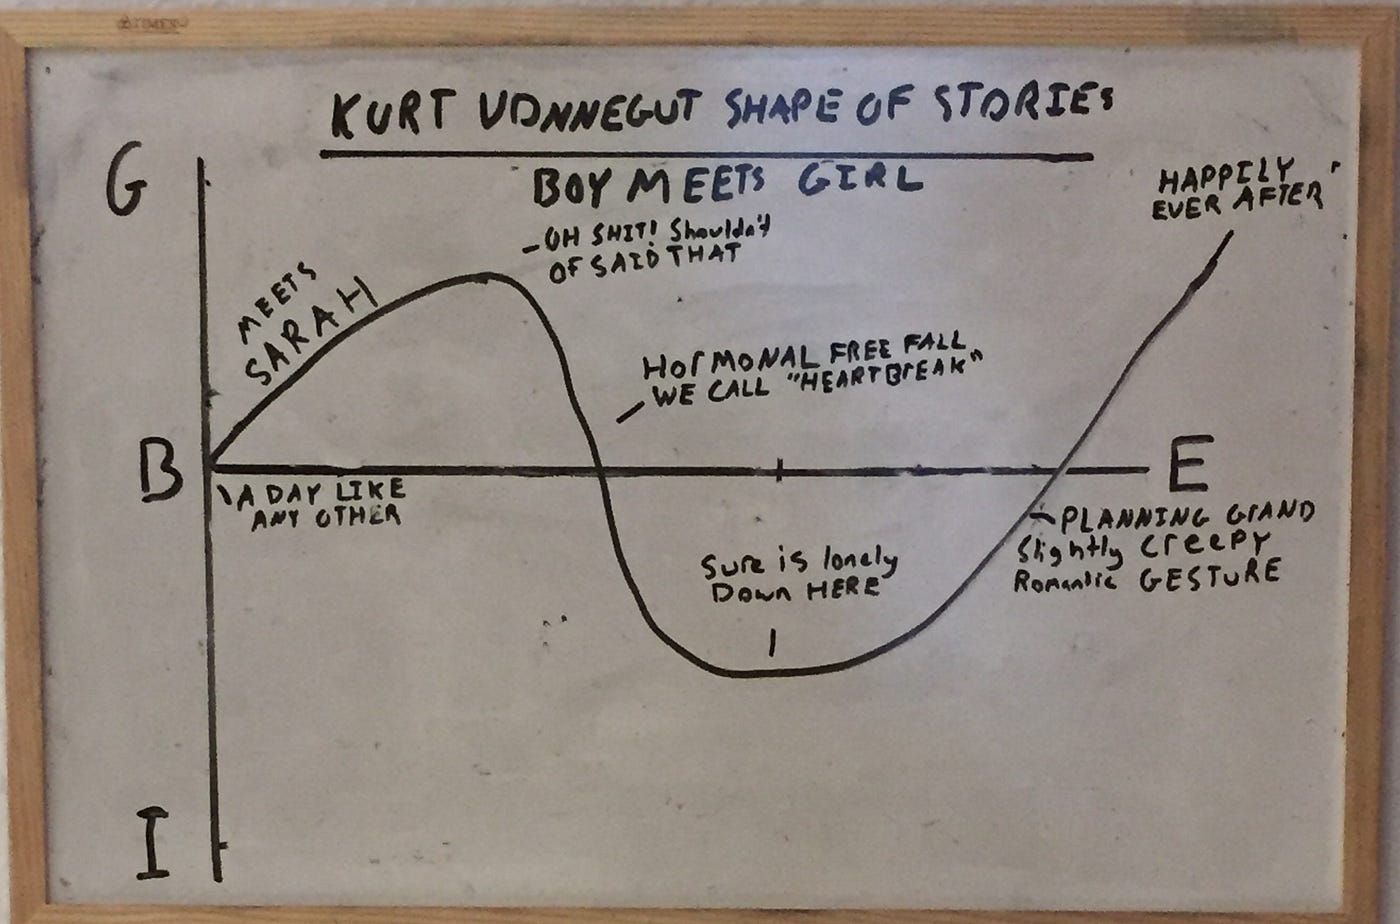 KURT VONNEGUT SHAPE OF STORIES
BOY MEETS GIRL
G
HAPPILY
EVER AFTER"
-OH SHIT! Shouldn't
OF SAID THAT
MEETS
SARAH
HORMONAL FREE FALL
WE CALL "HEARTBREAK"
B
E
A DAY LIKE
ANY OTHER
PLANNING GRAND
Slightly CREEPY
Romantic GESTURE
Sure is lonely
Down HERE
I